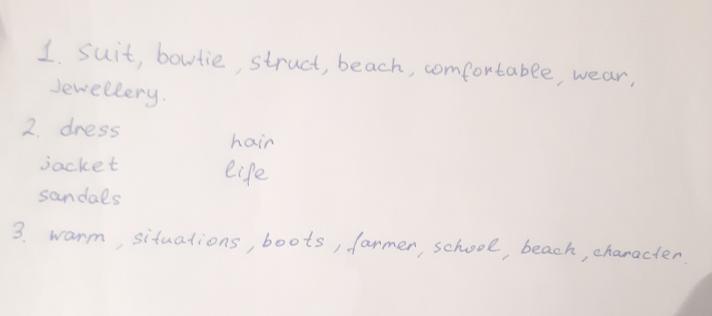 1. suit, bowtie, struct, beach, comfortable, wear,
Jewellery.
2. dress
jacket
sandals
hair
life
3. warm, situations, boots, farmer, school, beach, character.